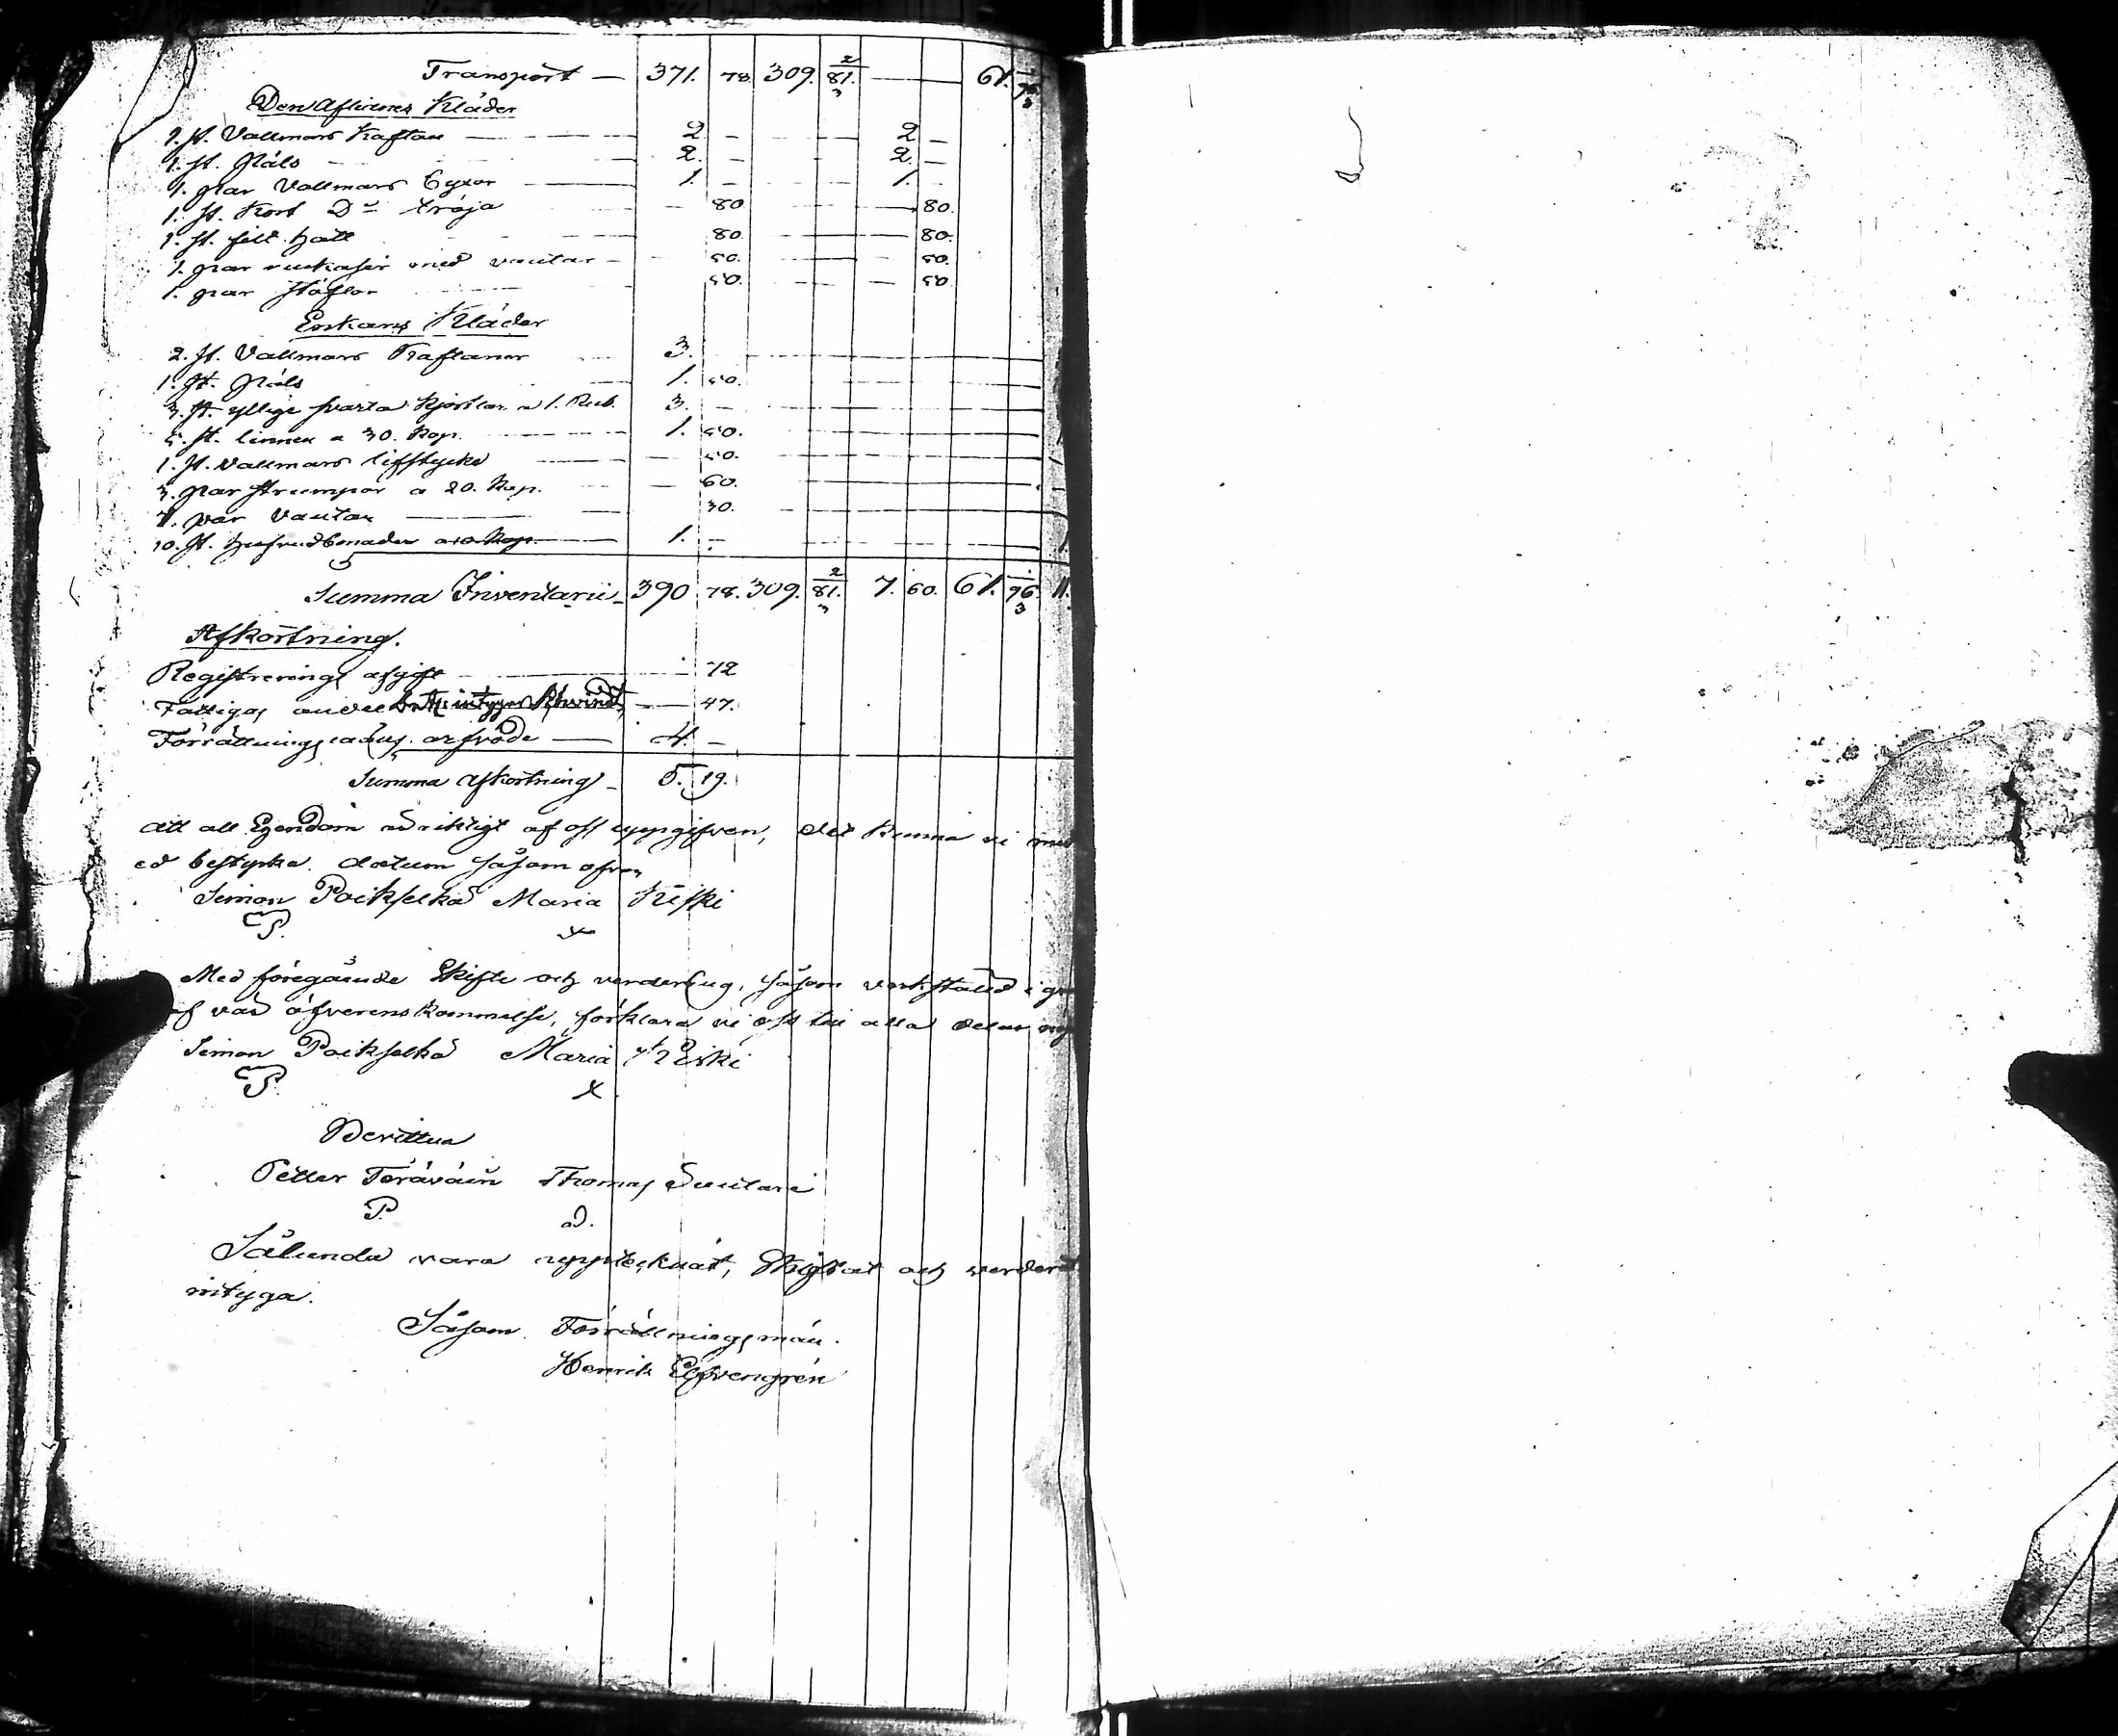 Transport — 371. 78. 309. 81. 2/3 — 61. 96. 1/3
Den Aflidnes Kläder
1. st. Vallmars Kaftan — 2 — 2 —
1. st. Päls — 2. — 2. —
1. par Vallmars Byxor — 1. — 1. —
1. st. Kort Do tröja — 80. — 80.
1. st. filt hatt — 80. — 80.
1. par med vantar — 50. — 50.
1. par Stöflor — 50. — 50.
Enkans Kläder
2. st. Vallmars Kaftaner 3.
1. st. Päls 1. 50.
3. st. yllige svarta Kjortlar a 1. Rub. 3. —
5. st. linnen a 30. Kop. 1. 50.
1. st. Vallmars lifstycke — 50.
3. par strumpor a 20. Kop. — 60.
1. par Vantar — 30.
10. st. hufvudbonader a 10 Kop. 1. —
Summa Inventarii 390 78. 309. 81. 2/3 7. 60. 61. 96. 1/3 11.
Afkortning.
Registrerings afgift — 72
Fattigas andel — 47.
Förrättningsmäns arfvode — 4. —
Summa Afkortning — 5. 19.
Att all Egendom är riktigt af oss uppgifven, det kunna vi med
ed bestyrka. datum såsom ofvan
Simon Poikselkä Maria Kiski
P. x
Med föregående Skifte och värdering, såsom verkstäld i
af vår öfverenskommelse, förklara vi oss till alla delar
Simon Poikselkä Maria Kiski
P. x
Bevittna
Petter Terävain Thomas Suutari
P.
Sålunda vara upptecknat, Skiftat och värderat
intyga.
Såsom Förrättningsmän.
Henrik Elfvengrén